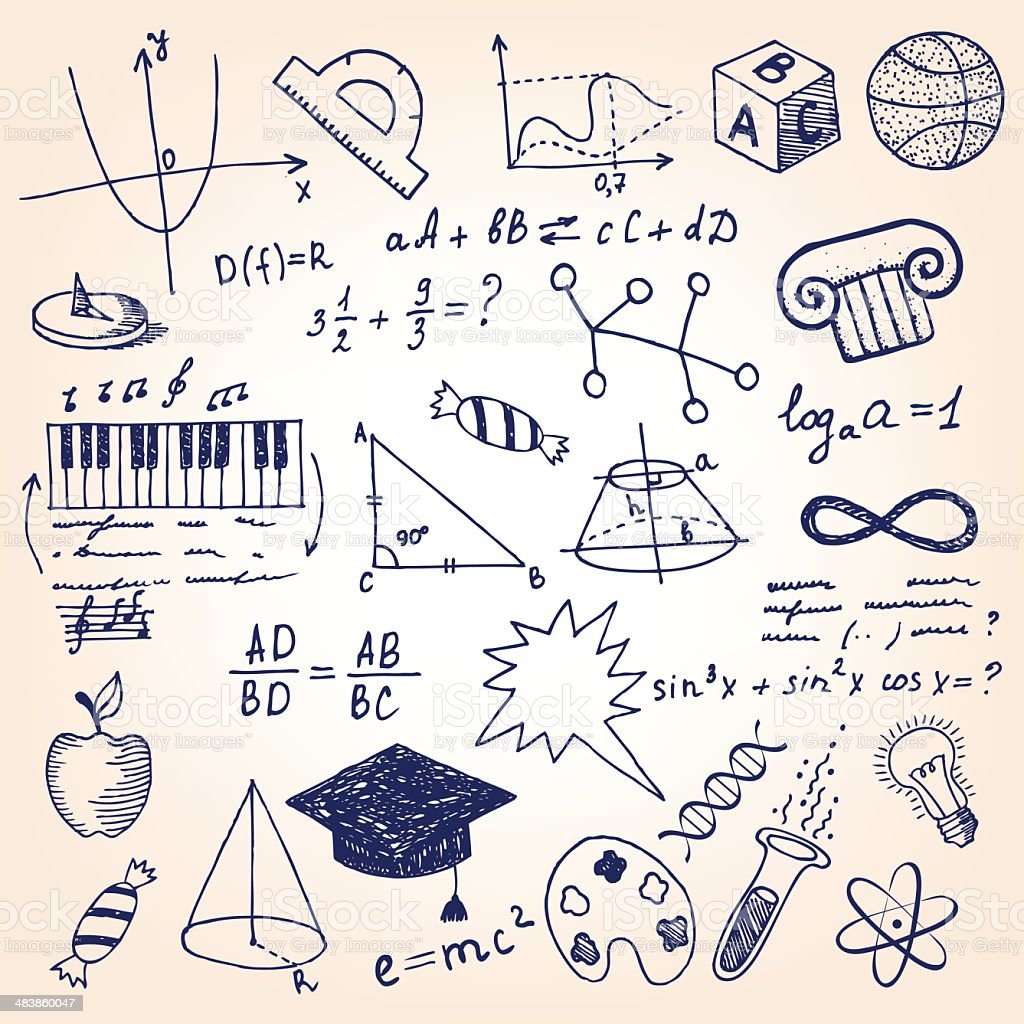 y
O
x
0,7
B
A C
D(f)=R
aA + bB ⇌ cC + dD
3 1/2 + 9/3 = ?
log_a a = 1
A
90°
C
B
a
h
b
AD/BD = AB/BC
(..) ?
sin³x + sin²x cos x = ?
R
e=mc²
iStock
by Getty Images™
483860047